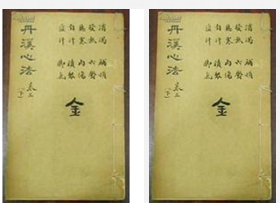 消渴 補損
發熱 六鬱
惡寒 內傷
自汗 積聚
盜汗 脚氣
金
丹溪心法 卷三
消渴 補損
發熱 六鬱
惡寒 內傷
自汗 積聚
盜汗 脚氣
金
丹溪心法 卷三